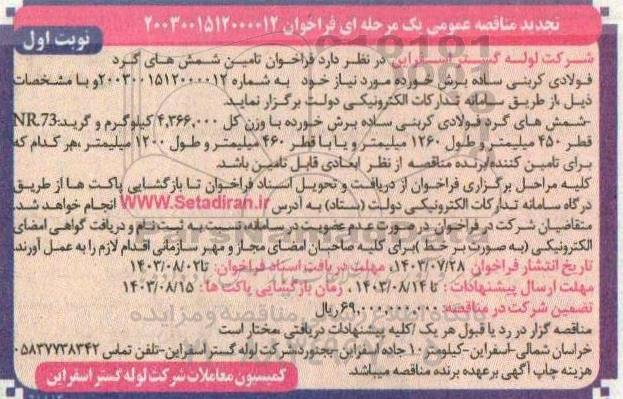 تجدید مناقصه عمومی یک مرحله ای فراخوان ۲۰۰۳۰۰۱۵۱۲۰۰۰۰۱۲
نوبت اول
شرکت لوله گستر اسفراین در نظر دارد فراخوان تامین شمش های گرد
فولادی کربنی ساده برش خورده مورد نیاز خود به شماره ۲۰۰۳۰۰۱۵۱۲۰۰۰۰۱۲ و با مشخصات
ذیل ،از طریق سامانه تدارکات الکترونیکی دولت برگزار نماید.
-شمش های گرد فولادی کربنی ساده برش خورده با وزن کل ۴,۳۶۶,۰۰۰ کیلوگرم و گرید:NR.73
قطر ۴۵۰ میلیمتر و طول ۱۲۶۰ میلیمتر و یا با قطر ۴۶۰ میلیمتر و طول ۱۲۰۰ میلیمتر ،هر کدام که
برای تامین کننده/برنده مناقصه از نظر ابعادی قابل تامین باشد.
کلیه مراحل برگزاری فراخوان از دریافت و تحویل اسناد فراخوان تا بازگشایی پاکت ها از طریق
درگاه سامانه تدارکات الکترونیکی دولت (ستاد) به آدرس www.Setadiran.ir انجام خواهد شد.
متقاضیان شرکت در فراخوان در صورت عدم عضویت در سامانه، نسبت به ثبت نام و دریافت گواهی امضای
الکترونیکی (به صورت بر خط )برای کلیه صاحبان امضای مجاز و مهر سازمانی اقدام لازم را به عمل آورند.
تاریخ انتشار فراخوان ۱۴۰۳/۰۷/۲۸، مهلت دریافت اسناد فراخوان: تا ۱۴۰۳/۰۸/۰۲
مهلت ارسال پیشنهادات : تا ۱۴۰۳/۰۸/۱۴ ، زمان بازگشایی پاکت ها : ۱۴۰۳/۰۸/۱۵
تضمین شرکت در مناقصه: ریال
مناقصه گزار در رد یا قبول هر یک /کلیه پیشنهادات دریافتی مختار است
خراسان شمالی -اسفراین-کیلومتر ۱۰ جاده اسفراین -بجنورد،شرکت لوله گستر اسفراین-تلفن تماس ۰۵۸۳۷۷۳۸۳۴۲
هزینه چاپ آگهی بر عهده برنده مناقصه میباشد.
کمیسیون معاملات شرکت لوله گستر اسفراین